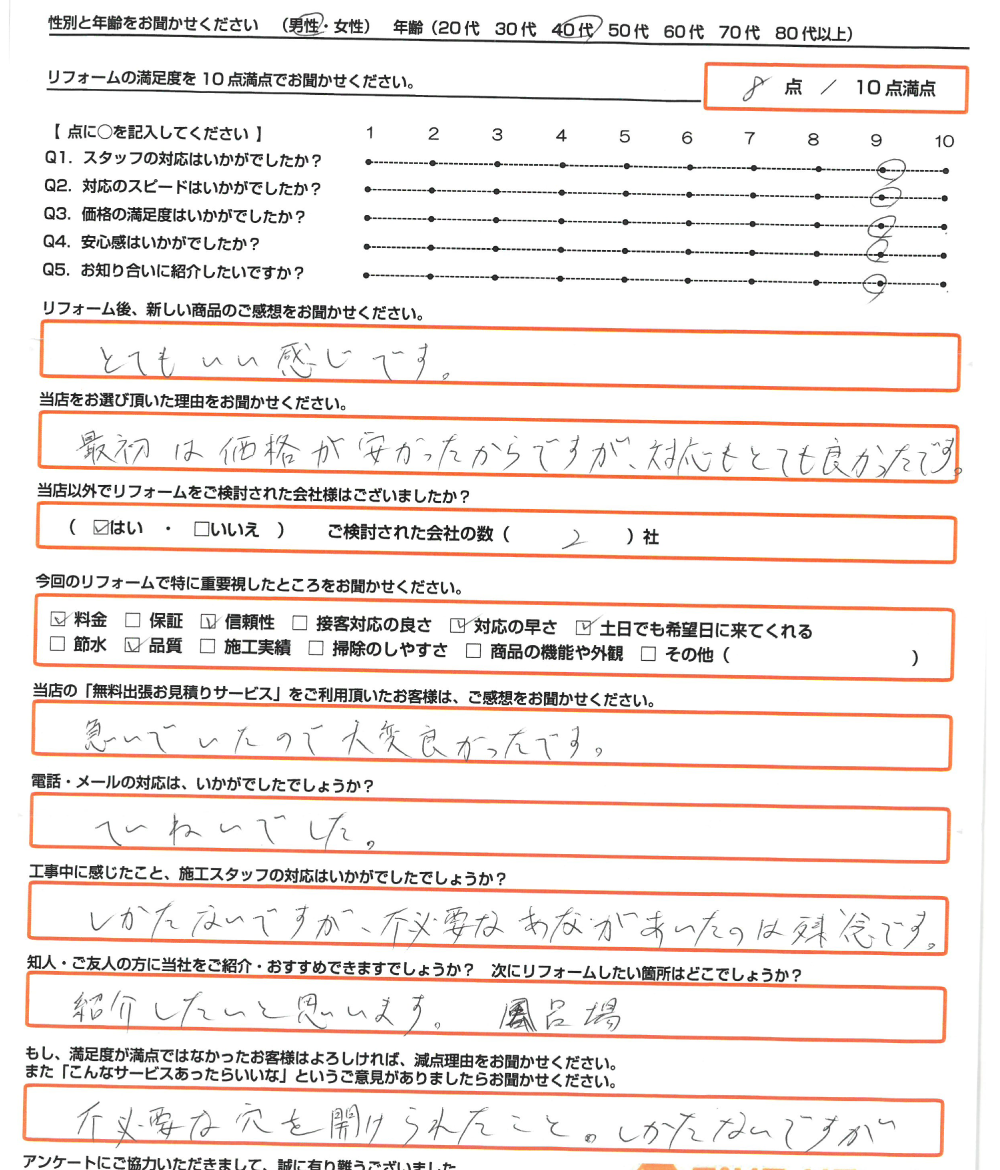 性別と年齢をお聞かせください （男性・女性） 年齢（20代 30代 40代 50代 60代 70代 80代以上）
リフォームの満足度を10点満点でお聞かせください。 8 点 ／ 10点満点
【 点に○を記入してください 】 1 2 3 4 5 6 7 8 9 10
Q1. スタッフの対応はいかがでしたか？
Q2. 対応のスピードはいかがでしたか？
Q3. 価格の満足度はいかがでしたか？
Q4. 安心感はいかがでしたか？
Q5. お知り合いに紹介したいですか？
リフォーム後、新しい商品のご感想をお聞かせください。
とてもいい感じです。
当店をお選び頂いた理由をお聞かせください。
最初は価格が安かったからですが、対応もとても良かったです。
当店以外でリフォームをご検討された会社様はございましたか？
（ ☑はい ・ □いいえ ） ご検討された会社の数（ 2 ）社
今回のリフォームで特に重要視したところをお聞かせください。
☑ 料金 □ 保証 ☑ 信頼性 □ 接客対応の良さ ☑ 対応の早さ ☑ 土日でも希望日に来てくれる
□ 節水 ☑ 品質 □ 施工実績 □ 掃除のしやすさ □ 商品の機能や外観 □ その他（ ）
当店の「無料出張お見積りサービス」をご利用頂いたお客様は、ご感想をお聞かせください。
急いでいたので大変良かったです。
電話・メールの対応は、いかがでしたでしょうか？
ていねいでした。
工事中に感じたこと、施工スタッフの対応はいかがでしたでしょうか？
しかたないですが、不必要なあながあいたのは残念です。
知人・ご友人の方に当社をご紹介・おすすめできますでしょうか？ 次にリフォームしたい箇所はどこでしょうか？
紹介したいと思います。 風呂場
もし、満足度が満点ではなかったお客様はよろしければ、減点理由をお聞かせください。
また「こんなサービスあったらいいな」というご意見がありましたらお聞かせください。
不必要な穴を開けられたこと。しかたないですが
アンケートにご協力いただきまして、誠に有り難うございました